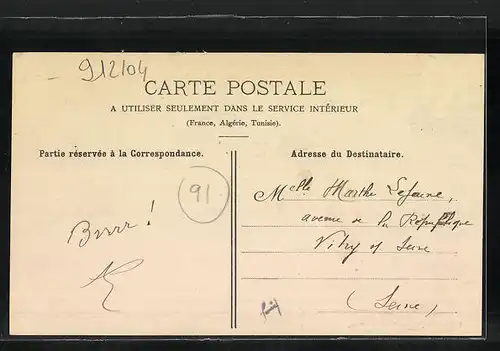 912104
CARTE POSTALE
A UTILISER SEULEMENT DANS LE SERVICE INTÉRIEUR
(France, Algérie, Tunisie).
Partie réservée à la Correspondance.
Brrrr !
91
Adresse du Destinataire.
Melle Marthe Lejeune,
avenue de la République
Vitry s/ Seine
(Seine)